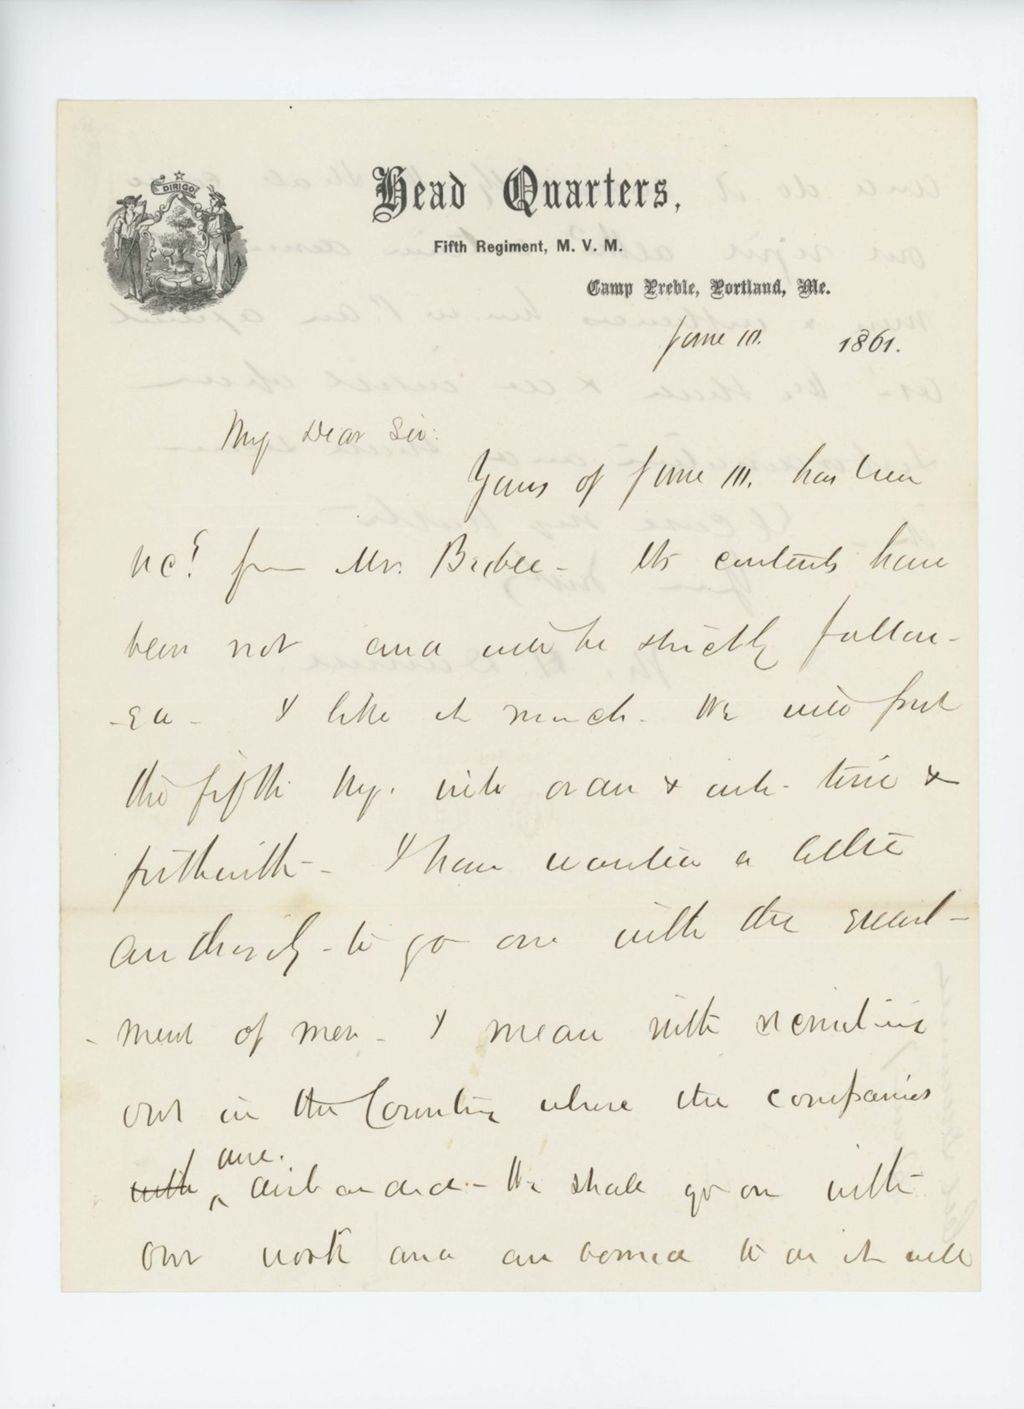 DIRIGO
Head Quarters,
Fifth Regiment, M. V. M.
Camp Preble, Portland, Me.
June 10. 1861.
My Dear Sir:
Yours of June 10. has been
rec'd from Mr. Its contents have
been and will be strictly follow-
-ed - I like it much. We will
the fifth Reg. &
forthwith - I have wanted a little
authority - to go on with the enlist-
-ment of men - I mean with recruiting
out in the Country where the companies
with are. disbanded - We shall go on with
our work and are bound to do it well